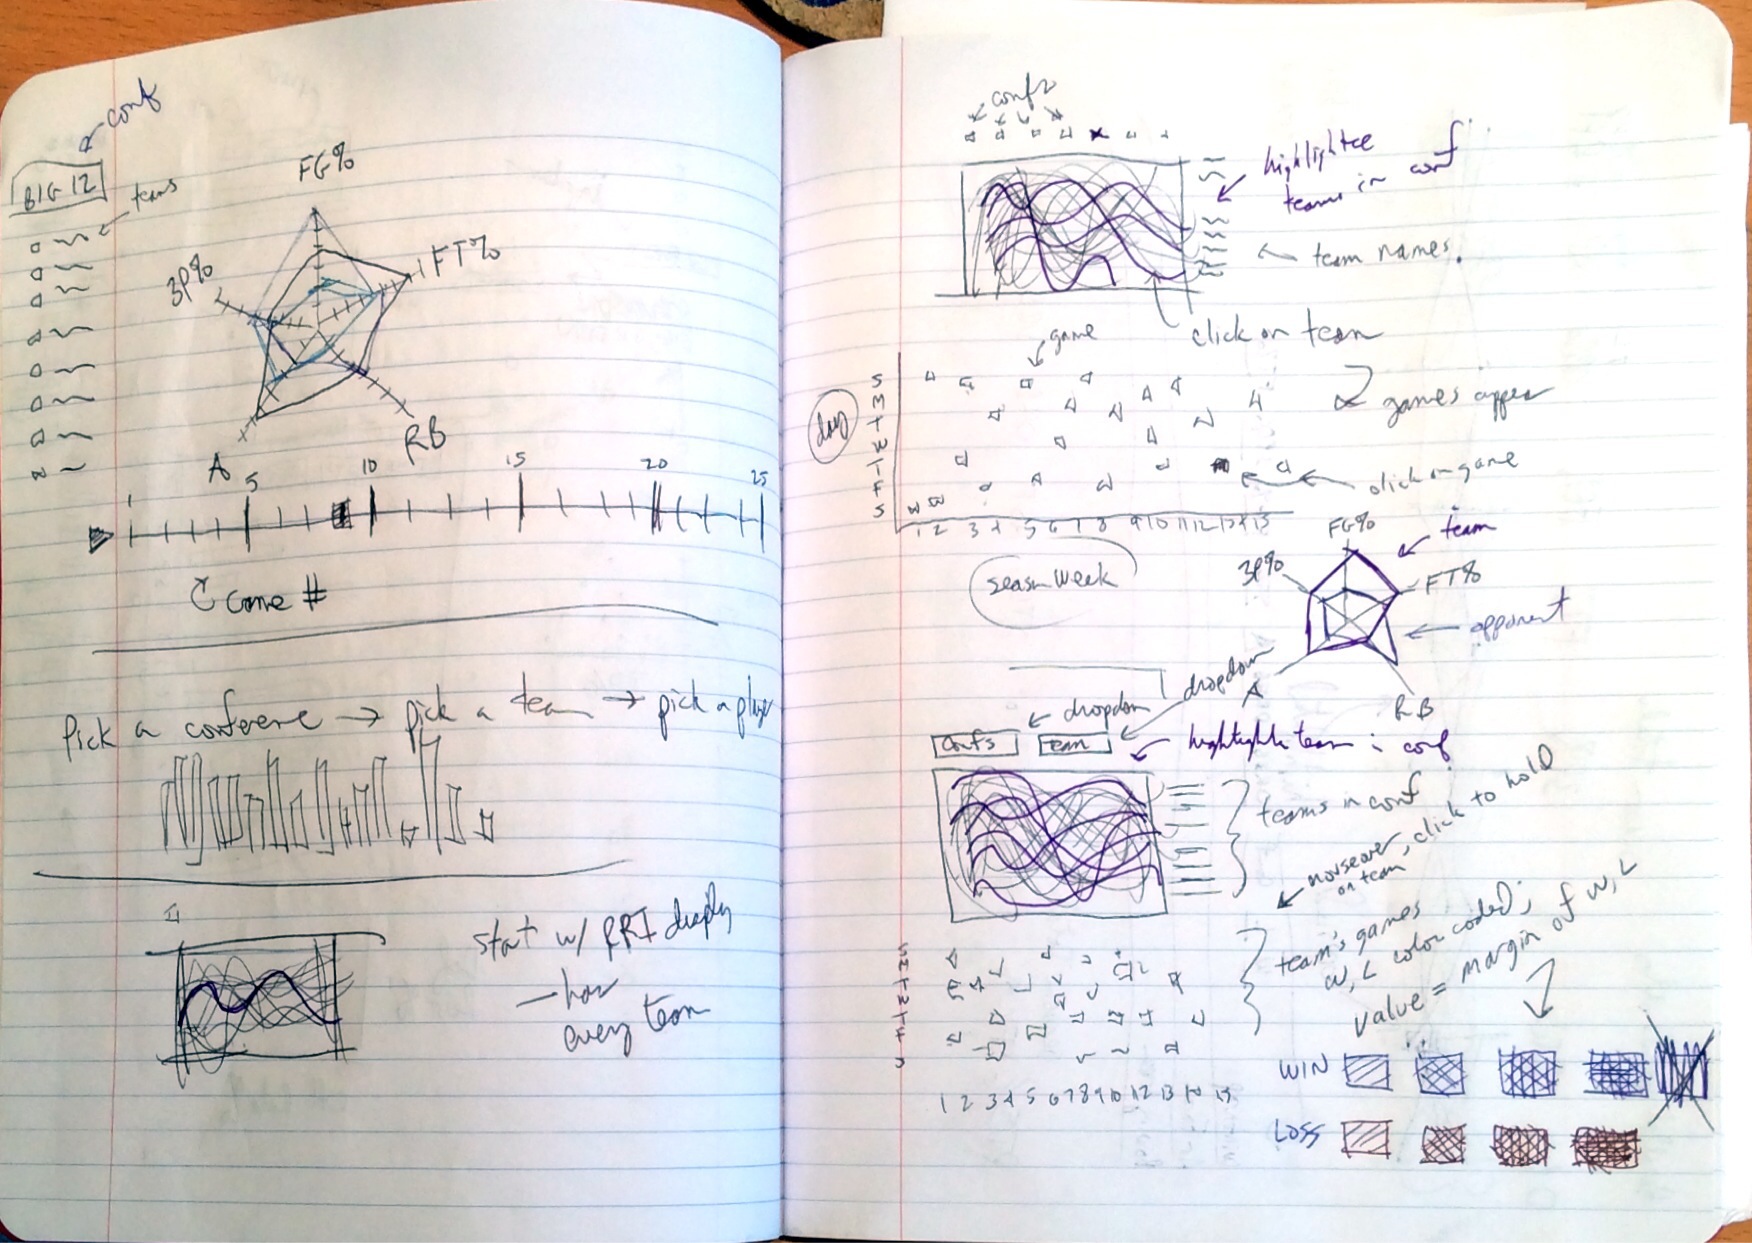 conf
BIG 12
teams
FG%
FT%
3P%
RB
A
1 5 10 15 20 25
Game #
Pick a conference → pick a team → pick a player
start w/ RPI display
— has
every team
confs
highlighted
teams in conf
team names.
click on team
game
games appear
day
S
M
T
W
T
F
S
click on game
1 2 3 4 5 6 7 8 9 10 11 12 13 14 15
season week
FG%
team
3P%
FT%
opponent
A
RB
dropdown
dropdown
confs
team
highlight team in conf
teams in conf
mouseover, click to hold
on team
team's games
W, L color coded;
value = margin of W, L
S
M
T
W
T
F
S
1 2 3 4 5 6 7 8 9 10 12 13
WIN
LOSS